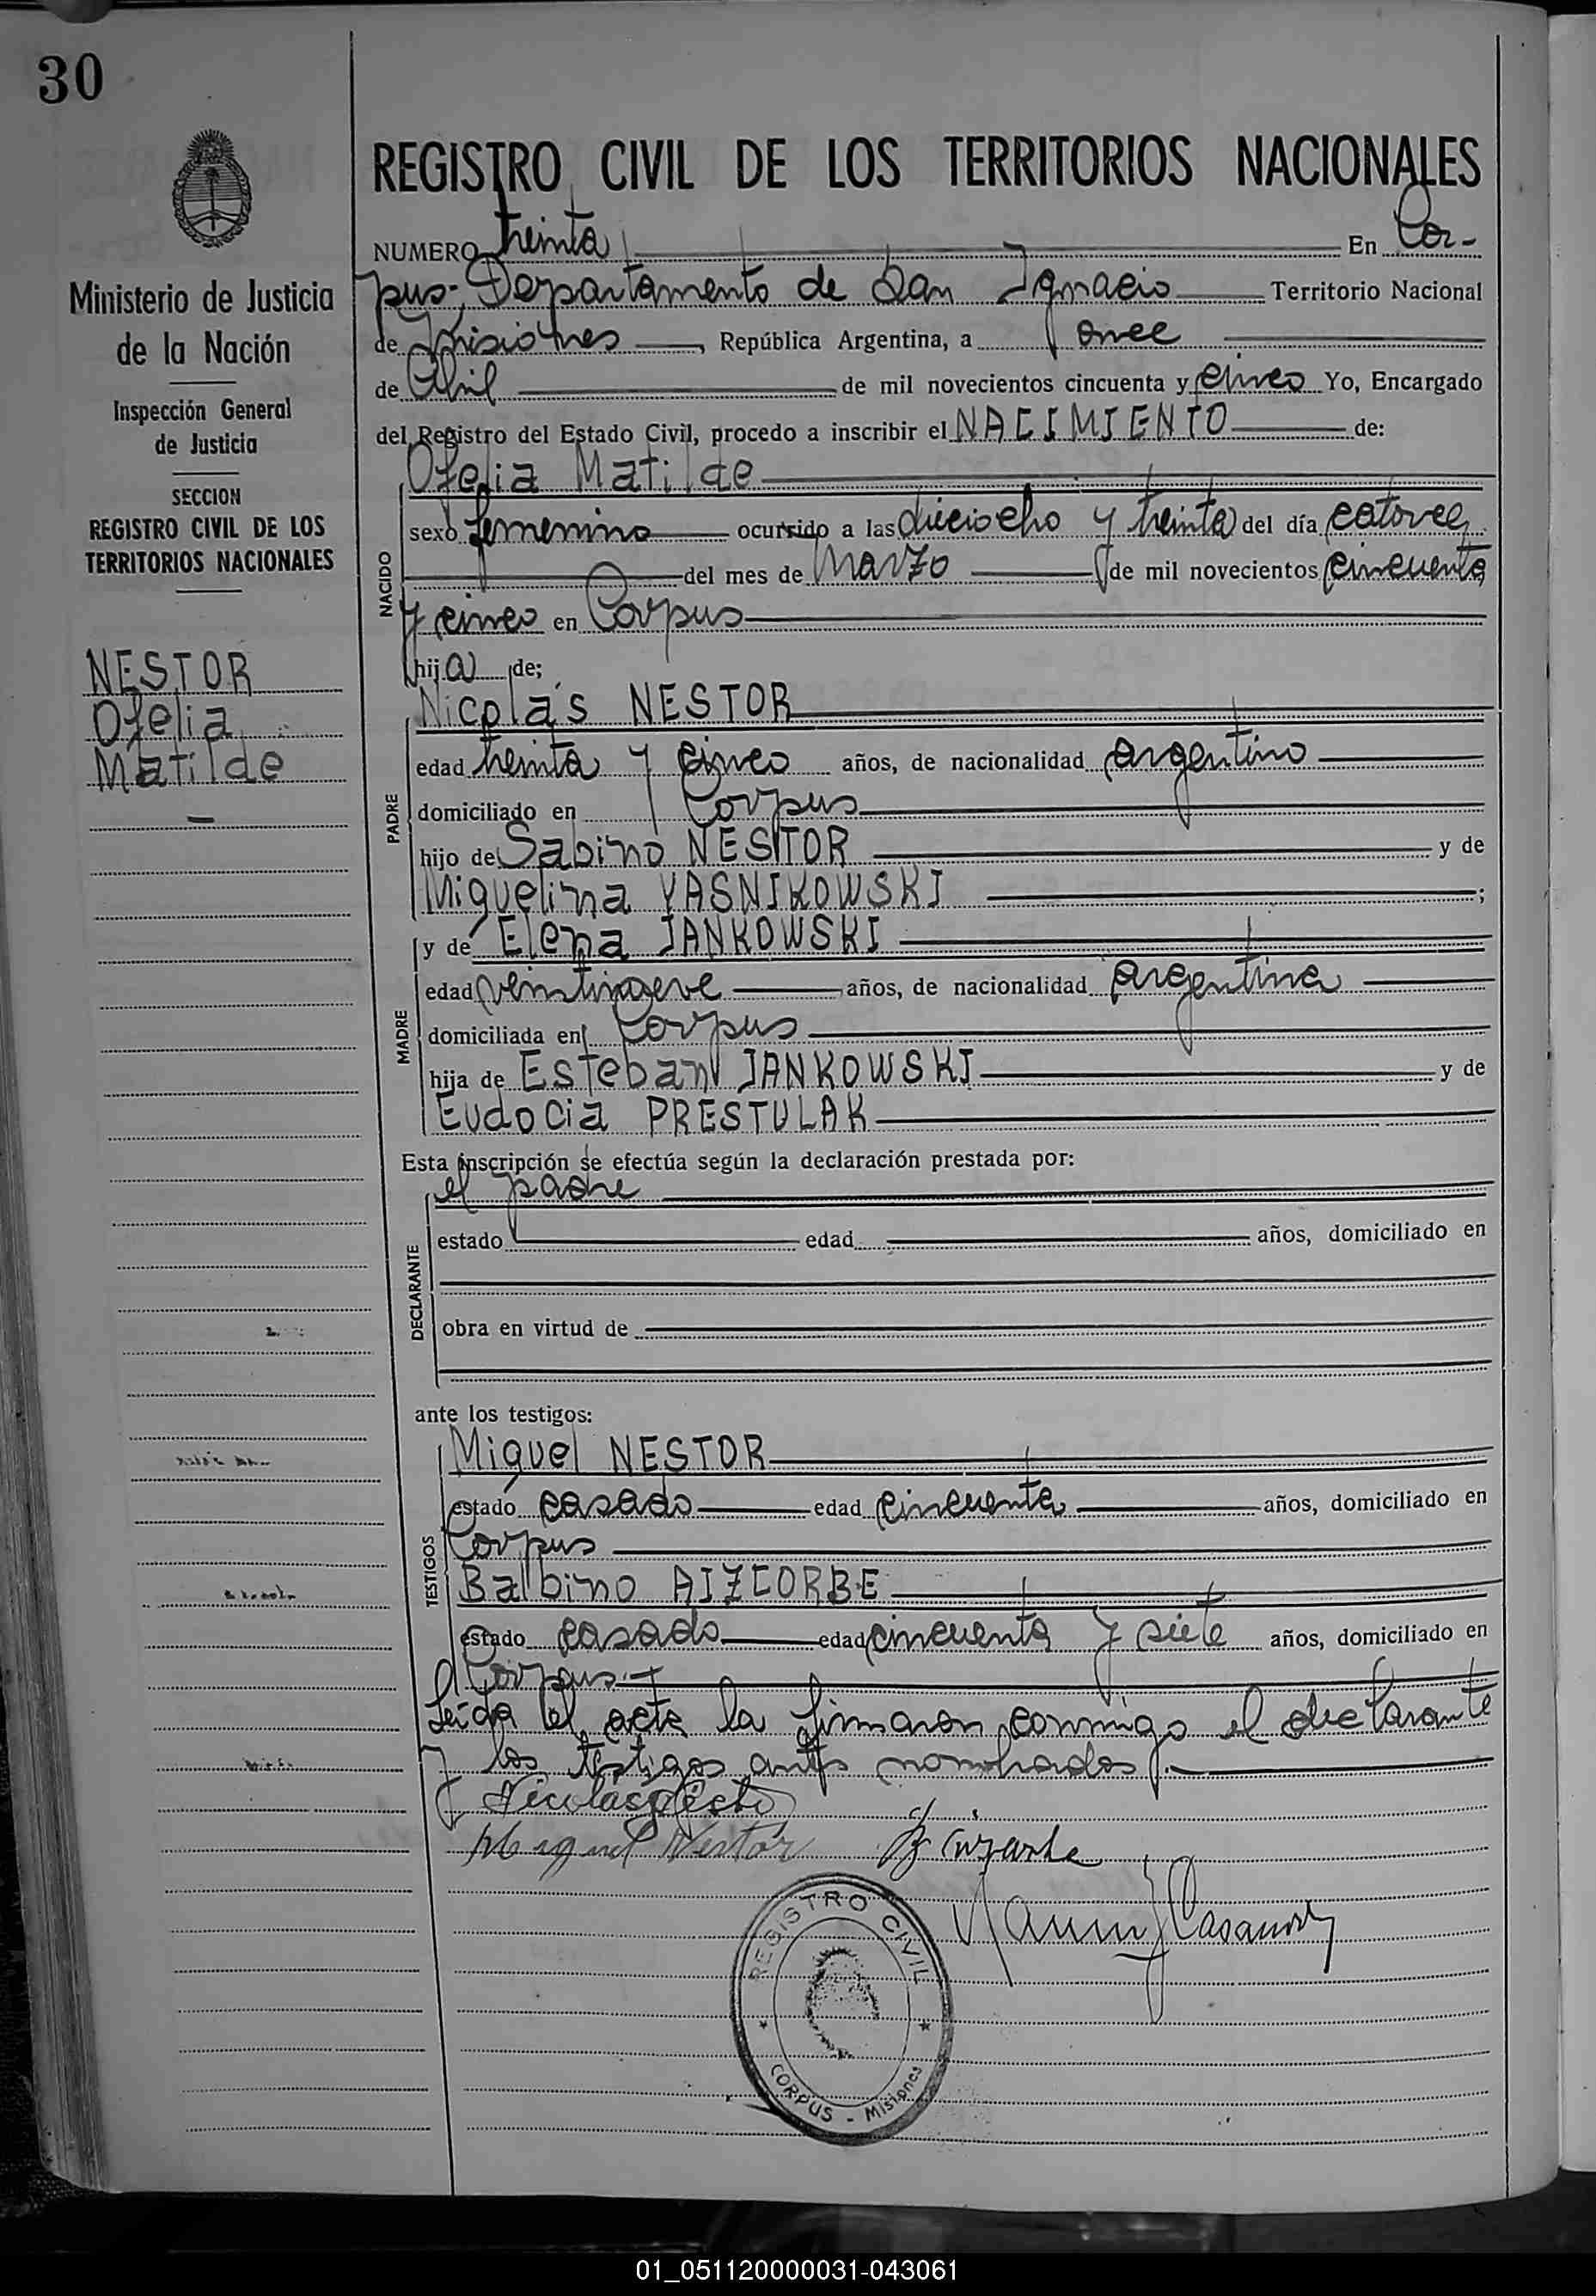 30
Ministerio de Justicia
de la Nación
Inspección General
de Justicia
SECCION
REGISTRO CIVIL DE LOS
TERRITORIOS NACIONALES
NESTOR
Ofelia
Matilde
REGISTRO CIVIL DE LOS TERRITORIOS NACIONALES
NUMERO treinta En Cor-
pus-, Departamento de San Ignacio Territorio Nacional
de Misiones, República Argentina, a once
de Abril de mil novecientos cincuenta y cinco Yo, Encargado
del Registro del Estado Civil, procedo a inscribir el NACIMIENTO de:
NACIDO
Ofelia Matilde
sexo femenino ocurrido a las dieciocho y treinta del día catorce
del mes de Marzo de mil novecientos cincuenta
y cinco en Corpus
hija de;
PADRE
Nicolás NESTOR
edad treinta y cinco años, de nacionalidad argentino
domiciliado en Corpus
hijo de Sabino NESTOR y de
Miguelina YASNIKOWSKI ;
MADRE
y de Elena JANKOWSKI
edad veintinueve años, de nacionalidad argentina
domiciliada en Corpus
hija de Esteban JANKOWSKI y de
Eudocia PRESTULAK
Esta inscripción se efectúa según la declaración prestada por:
DECLARANTE
el padre
estado edad años, domiciliado en
obra en virtud de
ante los testigos:
TESTIGOS
Miguel NESTOR
estado casado edad cincuenta años, domiciliado en
Corpus
Balbino AIZCORBE
estado casado edad cincuenta y siete años, domiciliado en
Corpus.-
Leída el acta la firmaron conmigo el declarante
y los testigos antes nombrados.-
Nicolas Nestor
Miguel Nestor
REGISTRO CIVIL
CORPUS - Misiones
01_051120000031-043061